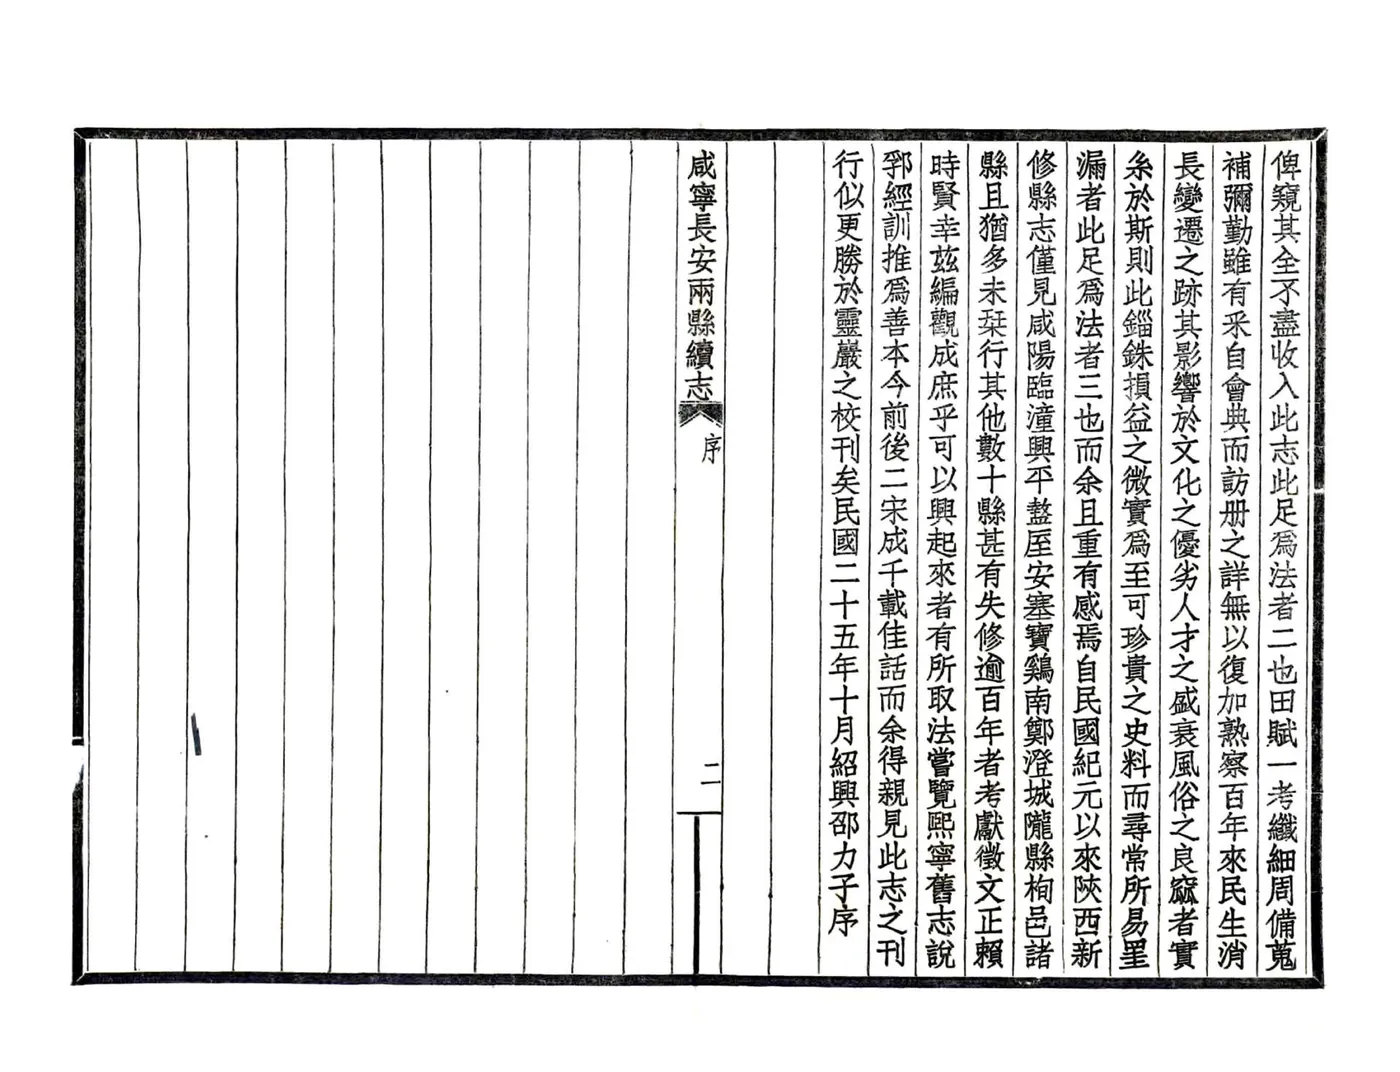 俾窺其全不盡收入此志此足爲法者二也田賦一考纖細周備蒐
補彌勤雖有釆自會典而訪册之詳無以復加熟察百年來民生消
長變遷之跡其影響於文化之優劣人才之盛衰風俗之良窳者實
糸於斯則此錙銖損益之微實爲至可珍貴之史料而尋常所易罣
漏者此足爲法者三也而余且重有感焉自民國紀元以來陝西新
修縣志僅見咸陽臨潼興平盩厔安塞寶鷄南鄭澄城隴縣栒邑諸
縣且猶多未栞行其他數十縣甚有失修逾百年者考獻徵文正賴
時賢幸茲編觀成庶乎可以興起來者有所取法嘗覽熙寧舊志說
郛經訓推爲善本今前後二宋成千載佳話而余得親見此志之刊
行似更勝於靈巖之校刊矣民國二十五年十月紹興邵力子序
咸寧長安兩縣續志
序
二